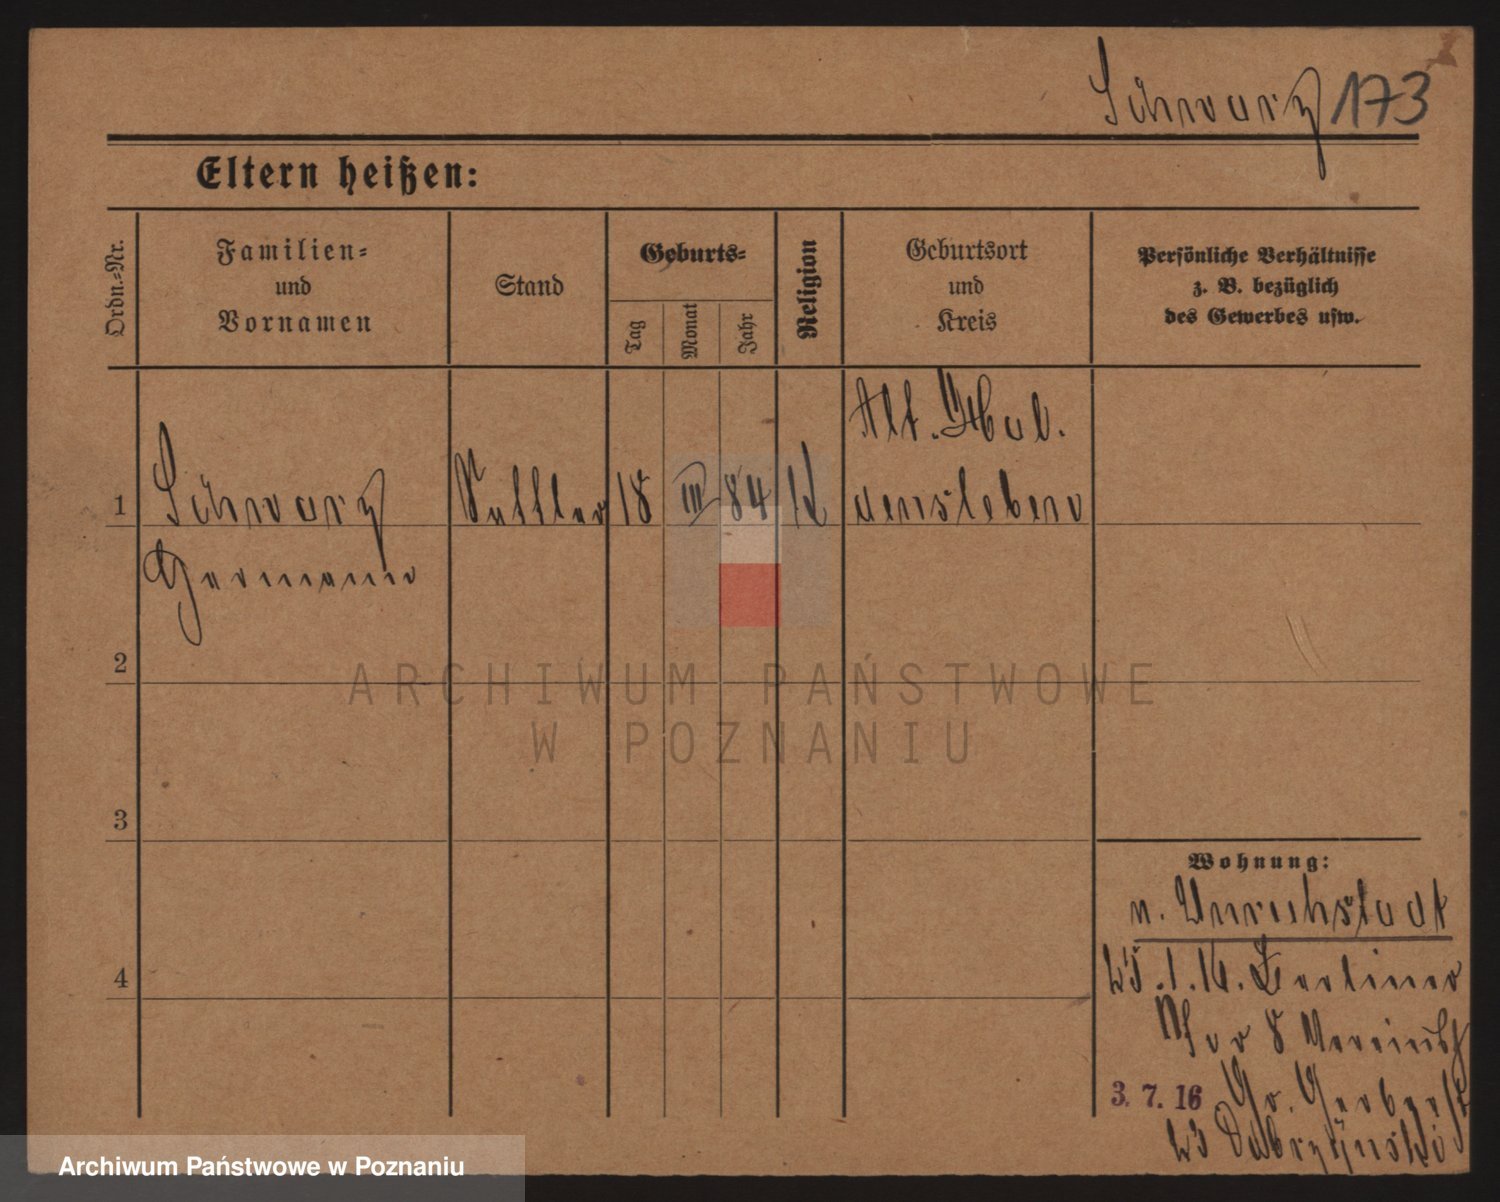 Schwarz 173
Eltern heißen:
Ordn.-Nr.
Familien-
und
Vornamen
Stand
Geburts-
Tag
Monat
Jahr
Religion
Geburtsort
und
Kreis
Persönliche Verhältnisse
z. B. bezüglich
des Gewerbes usw.
Alt. Hal.
1 Schwarz Sattler 18 III 84 K densleben
Hermann
2
3
4
Wohnung:
n. Unruhstadt
25.1.16. Berliner
Tor 8 Vereinsh
3. 7. 16 Gr. Gerberstr
23 Dabrzynski
ARCHIWUM PAŃSTWOWE
W POZNANIU
Archiwum Państwowe w Poznaniu